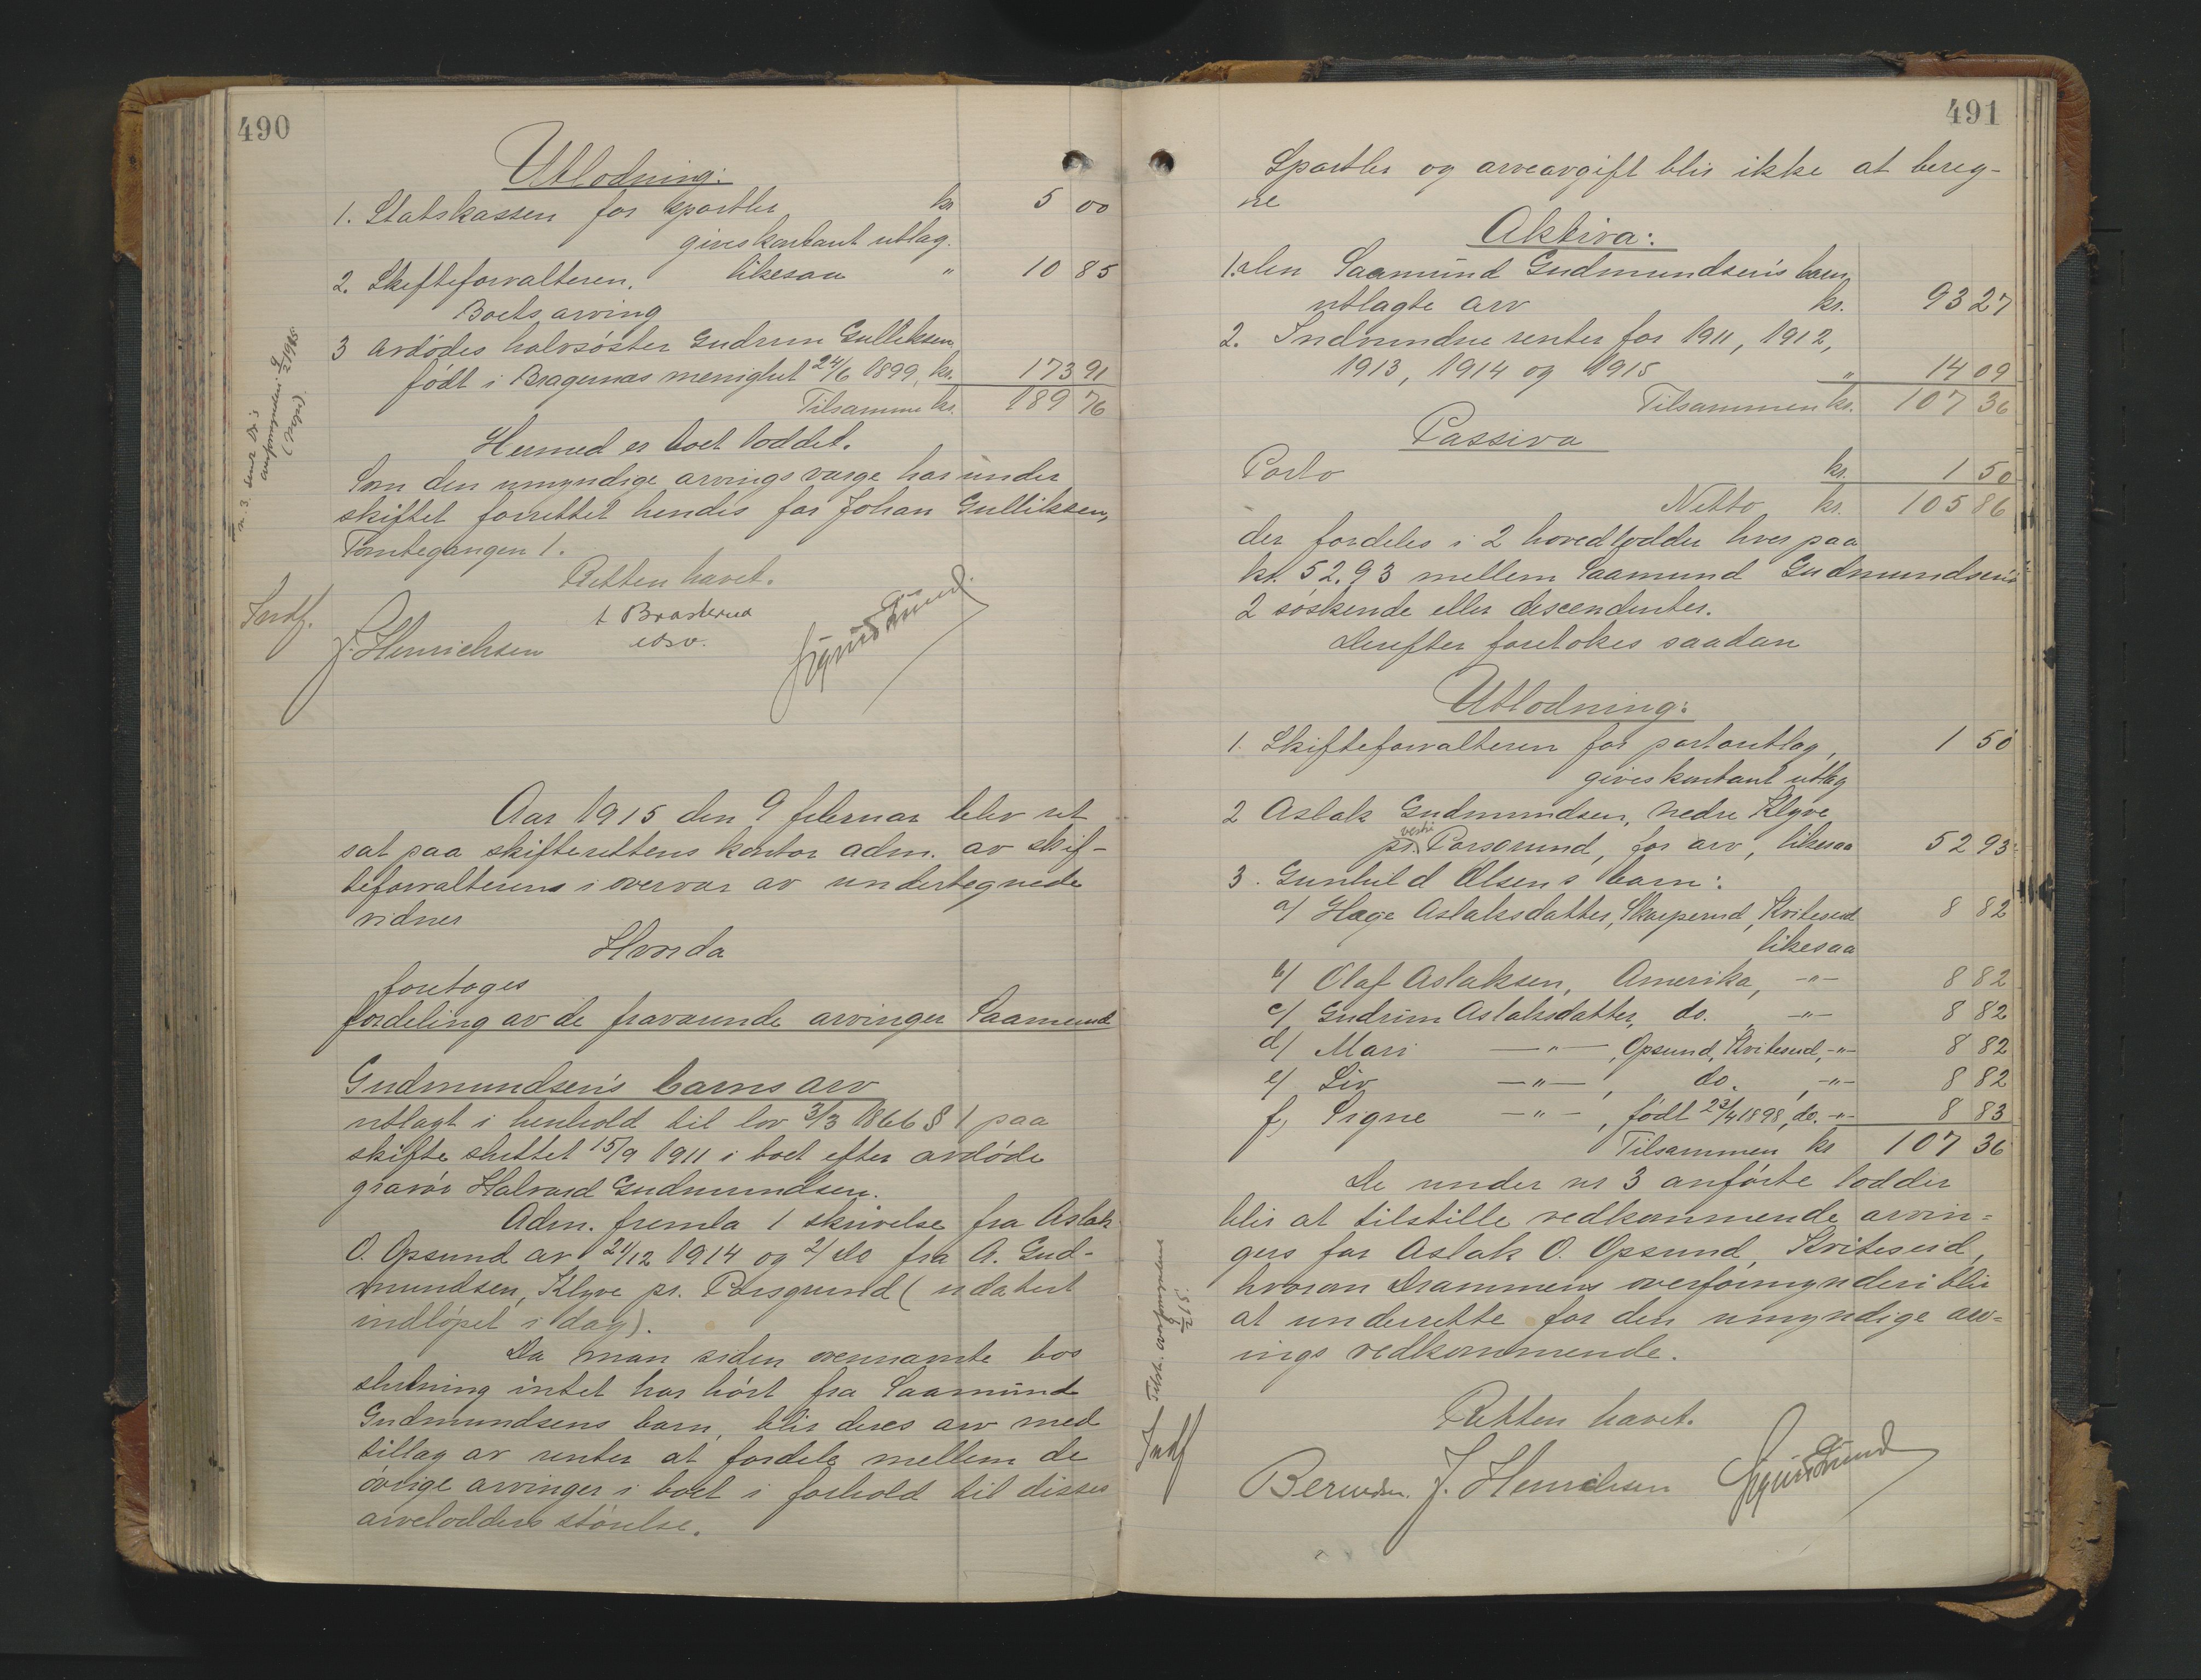 490
Utlodning:
1. Statskassen for sportler kr 5 00
gives kontant utlæg.
2. Skifteforvalteren, likesaa " 10 85
Boets arving
3 Avdødes halvsøster Gudrun Gulliksen,
født i Bragernæs menighet 24/6 1899, kr. 173 91
Tilsammen kr. 189 76
Hermed er boet loddet.
Som den umyndige arvings værge har under
skiftet forrettet hendes far Johan Gulliksen,
Tomtegangen 1.
Retten hævet.
Indf.
J. Henrichsen
Sigurd Lund
n. 3. sendt Dr.s
overformynderi 9/2 1915.
Aar 1915 den 9 februar blev ret
sat paa skifterettens kontor adm. av skif-
teforvalteren i overvær av undertegnede
vidner
Hvorda
foretoges
fordeling av de fraværende arvinger Saamund
Gudmundsen's barns arv
utlagt i henhold til lov 3/3 1866 § 1 paa
skifte sluttet 15/9 1911 i boet efter avdøde
gravør Halvard Gudmundsen.
Adm. fremla 1 skrivelse fra Aslak
O. Opsund av 21/12 1914 og 2/ do fra A. Gud-
mundsen, Klyve pr. Porsgrund (udatert
indløpet i dag).
Da man siden ovennævnte bos
slutning intet har hørt fra Saamund
Gudmundsens barn, blir deres arv med
tillæg av renter at fordele mellem de
øvrige arvinger i boet i forhold til disses
arvelodders størelse.
491
Sportler og arveavgift blir ikke at bereg-
ne
Aktiva:
1. Den Saamund Gudmundsen's barn
utlagte arv kr. 93 27
2. Indvundne renter for 1911, 1912,
1913, 1914 og 1915 " 14 09
Tilsammen kr. 107 36
Passiva
Porto kr. 1 50
Netto kr. 105 86
der fordeles i 2 hovedlodder hver paa
kr. 52.93 mellem Saamund Gudmundsen's
2 søskende eller descendenter.
Derefter foretokes saadan
Utlodning:
1. Skifteforvalteren for portoutlæg, 1 50
gives kontant utlæg
2 Aslak Gudmundsen, nedre Klyve
pr. vestre Porsgrund, for arv, likesaa 52 93
3. Gunhild Olsens barn:
a/ Hæge Aslaksdatter, Skaperud, Kviteseid 8 82
likesaa
b/ Olaf Aslaksen, Amerika, -"- 8 82
c/ Gudrun Aslaksdatter, do. -"- 8 82
d/ Mari -"-, Opsund, Kviteseid, -"- 8 82
e/ Liv -"-, do. -"- 8 82
f, Signe -"-, født 23/4 1898, do. -"- 8 83
Tilsammen kr 107 36
De under nr 3 anførte lodder
blir at tilstille vedkommende arvin=
gers far Aslak O. Opsund, Kviteseid,
hvorom Drammens overformynderi blir
at underrette for den umyndige arv=
ings vedkommende.
Retten hævet.
Tilsk. overformynderiet 9/2 15.
Indf
Berntsen. J. Henrichsen Sigurd Lund